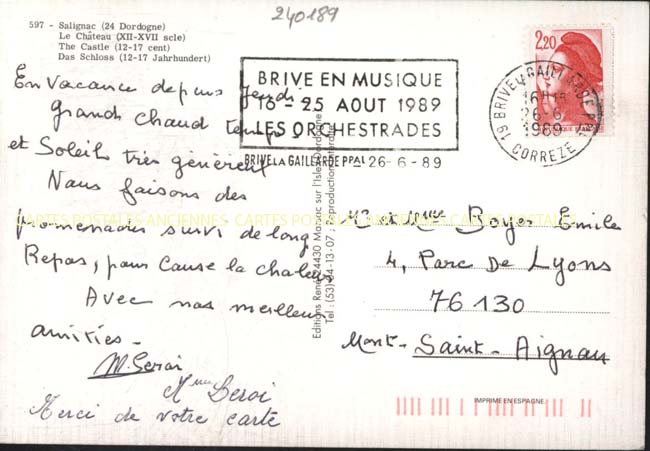 240189
597 - Salignac (24 Dordogne)
Le Château (XII-XVII scle)
The Castle (12-17 cent)
Das Schloss (12-17 Jahrhundert)
BRIVE EN MUSIQUE
16 - 25 AOUT 1989
LES ORCHESTRADES
BRIVE LA GAILLARDE PPAL - 26-6-89
2,20
19 BRIVE LA GAILLARDE PPAL
26-6
1989
CORREZE
En Vacance depuis Jeudi
grands Chaud temps
et Soleils très généreux
Nous faisons des
promenades suivi de long
Repas, pour Cause la chaleur
Avec nos meilleurs
amitiés -
M. Seroi
Mme Seroi
Merci de votre carte
Editions René 24430 Marsac sur l'Isle Dordogne
Tel : (53) 54-13-07 ; Reproduction interdite
CARTES POSTALES ANCIENNES CARTES POSTALES ANCIENNES CARTES POSTALES
Mr et Mme Boyer Emile
4, Parc De Lyons
76130
Mont-Saint-Aignan
IMPRIME EN ESPAGNE